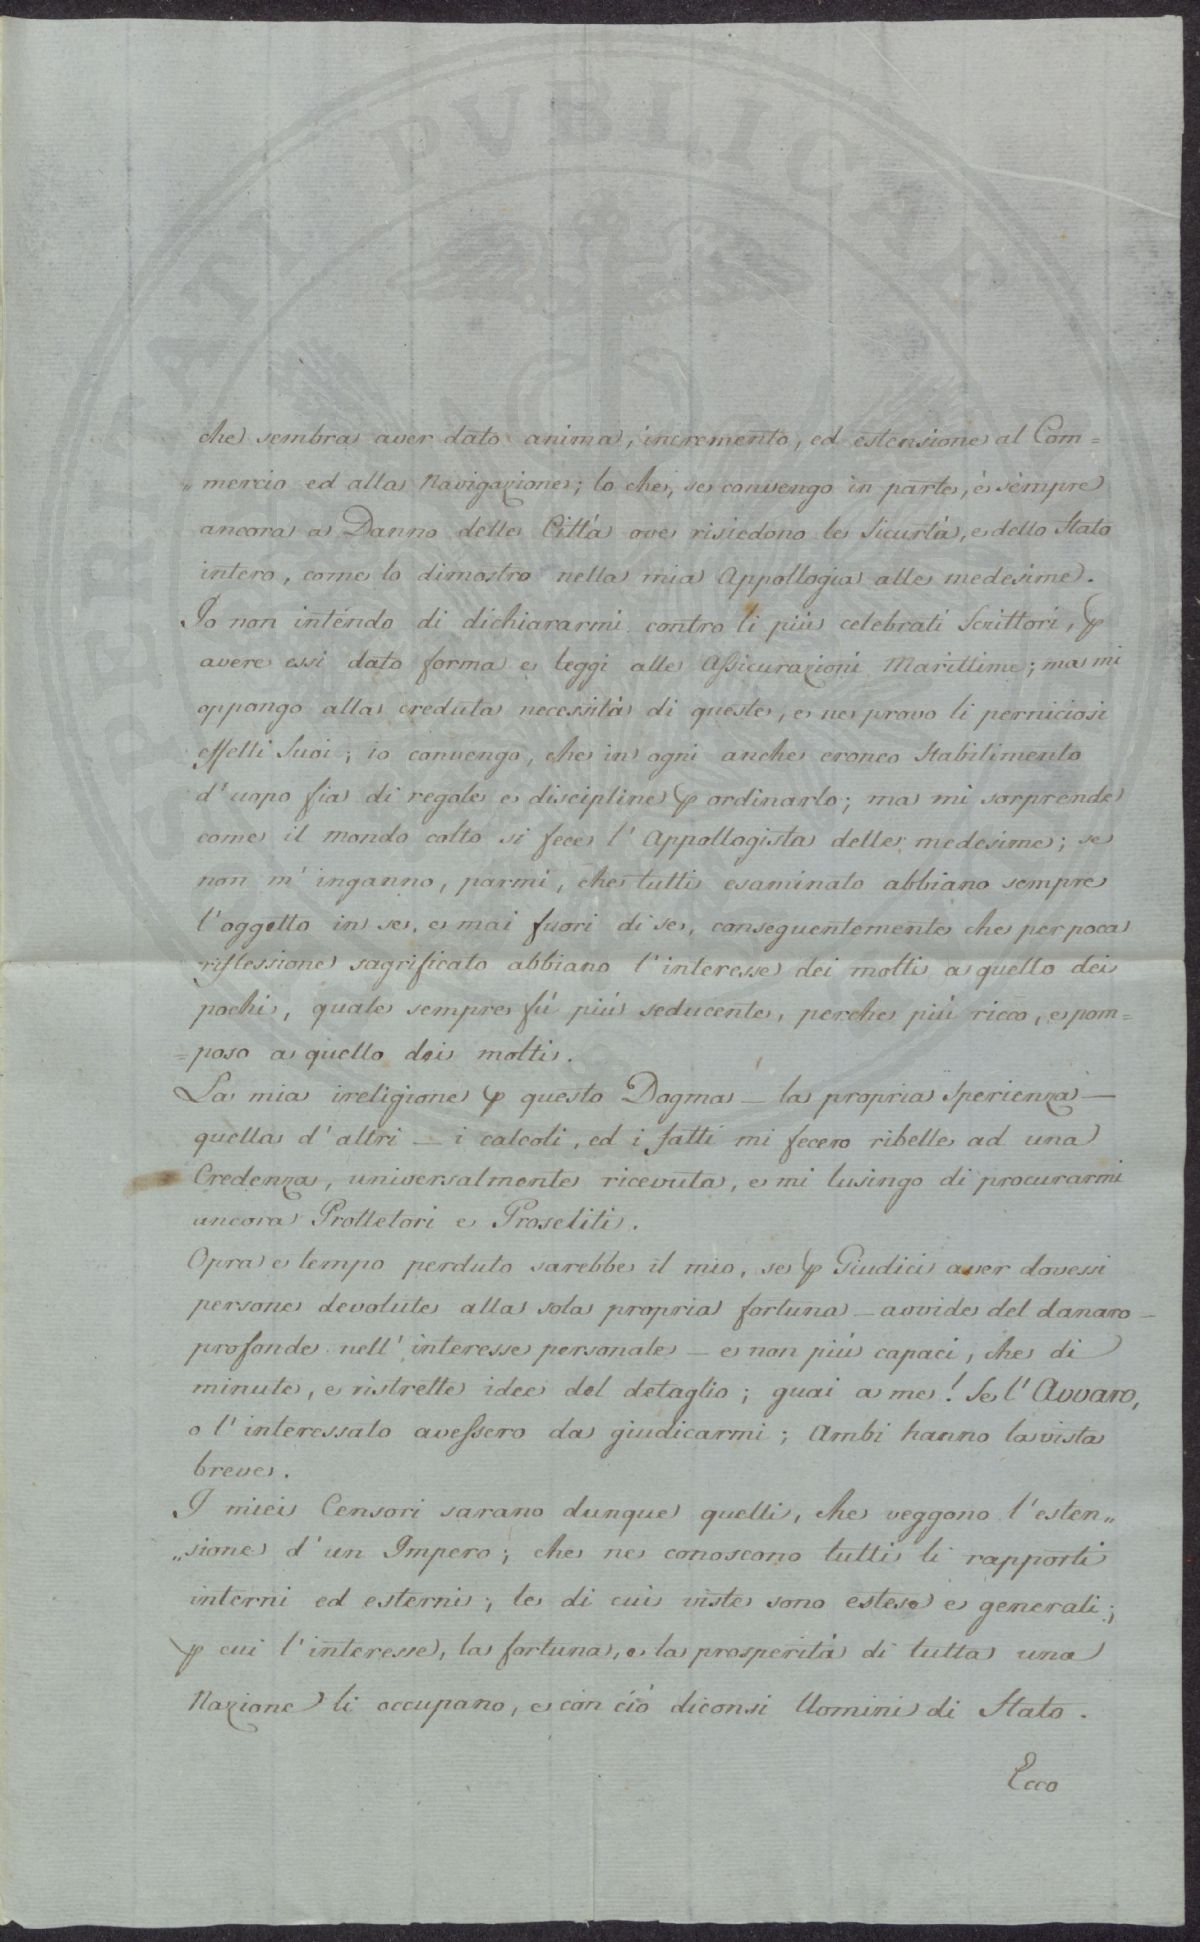 PROSPERITATI PVBLICAE
che sembra aver dato anima, incremento, ed estensione al Com=
„mercio ed alla Navigazione; lo che, se convengo in parte, è sempre
ancora a Danno delle Città ove risiedono le Sicurtà, e dello Stato
intero, come lo dimostro nella mia Appollogia alle medesime.
Io non intendo di dichiararmi contro li più celebrati Scrittori, ꝑ
avere essi dato forma e leggi alle Assicurazioni Marittime; ma mi
oppongo alla creduta necessità di queste, e ne provo li perniciosi
effetti Suoi; io convengo, che in ogni anche eroneo Stabilimento
d'uopo fia di regole e discipline ꝑ ordinarlo; ma mi sorprende
come il mondo colto si fece l'Appollogista delle medesime; se
non m'inganno, parmi, che tutti esaminato abbiano sempre
l'oggetto in se, e mai fuori di se, conseguentemente che per poca
riflessione sagrificato abbiano l'interesse dei molti a quello dei
pochi, quale sempre fù più seducente, perche più ricco, e pom=
=poso a quello dei molti.
La mia ireligione ꝑ questo Dogma — la propria Sperienza —
quella d'altri — i calcoli, ed i fatti mi fecero ribelle ad una
Credenza, universalmente ricevuta, e mi lusingo di procurarmi
ancora Prottetori e Proseliti.
Opra e tempo perduto sarebbe il mio, se ꝑ Giudici aver dovessi
persone devolute alla sola propria fortuna — avvide del danaro —
profonde nell'interesse personale — e non più capaci, che di
minute, e ristrette idee del detaglio; guai a me! Se l'Avvaro,
o l'interessato avessero da giudicarmi; Ambi hanno la vista
breve.
I miei Censori sarano dunque quelli, che veggono l'esten„
„sione d'un Impero; che ne conoscono tutti li rapporti
interni ed esterni; le di cui viste sono estese e generali;
ꝑ cui l'interesse, la fortuna, e la prosperità di tutta una
Nazione li occupano, e con ciò diconsi Uomini di Stato.
Ecco